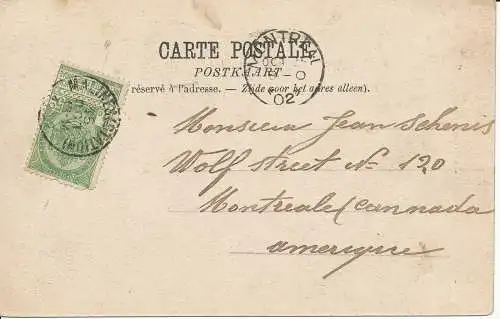 MONTREAL
OC
0
02
CARTE POSTALE
POSTKAART
réservé à l'adresse. — Zijde voor het adres alleen).
Monsieur Jean Schenis
Wolf street No 120
Montreale (Cannada
amerique